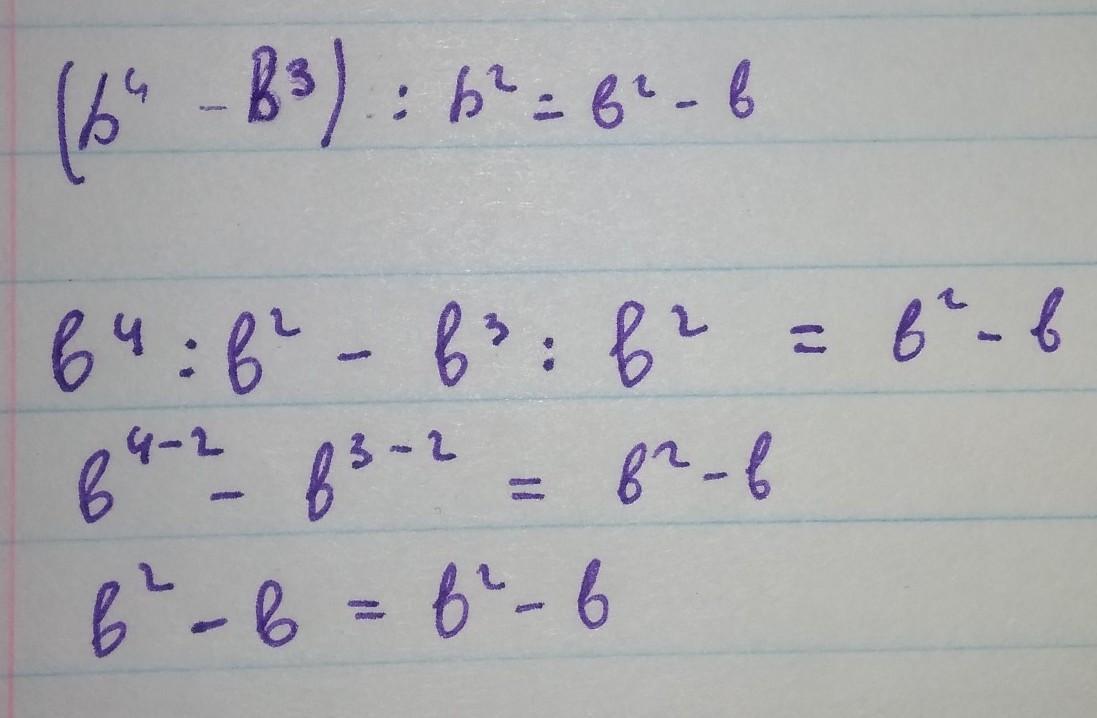 (b⁴ - b³) : b² = b² - b
b⁴ : b² - b³ : b² = b² - b
b⁴⁻² - b³⁻² = b² - b
b² - b = b² - b